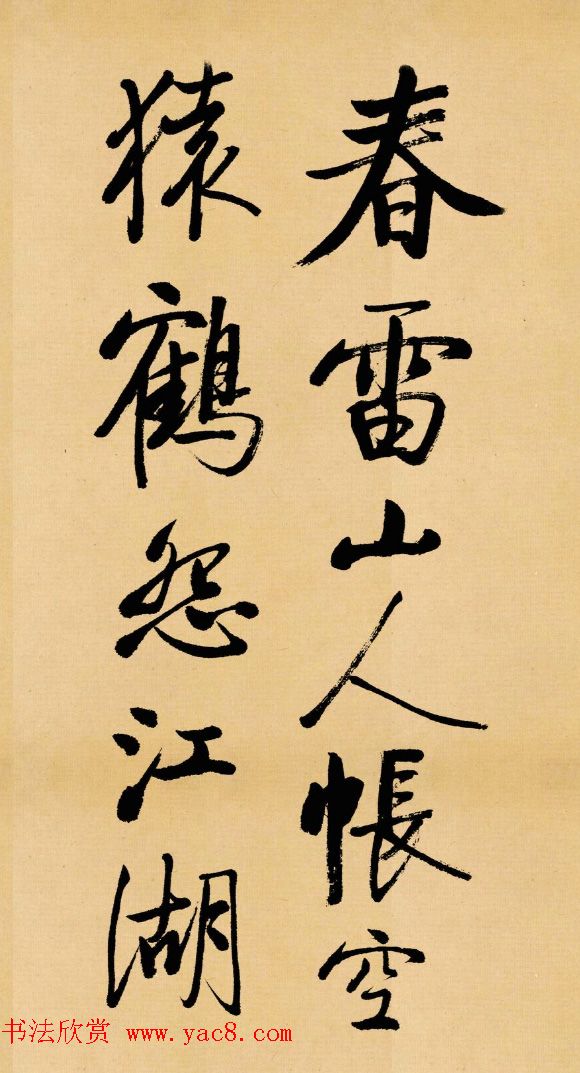 春雷山人帳空
猿鶴怨江湖
书法欣赏 www.yac8.com